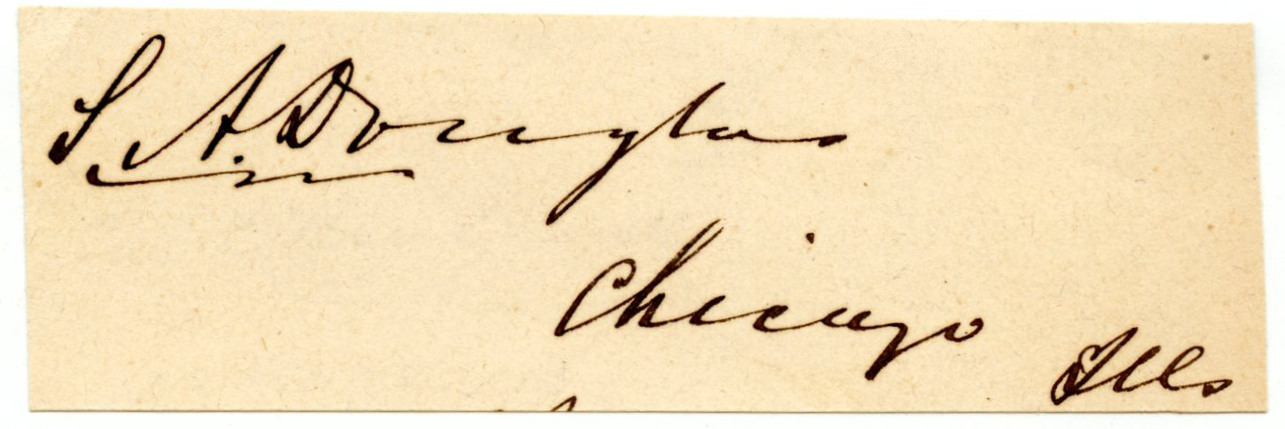 S A Douglas
Chicago
Ills